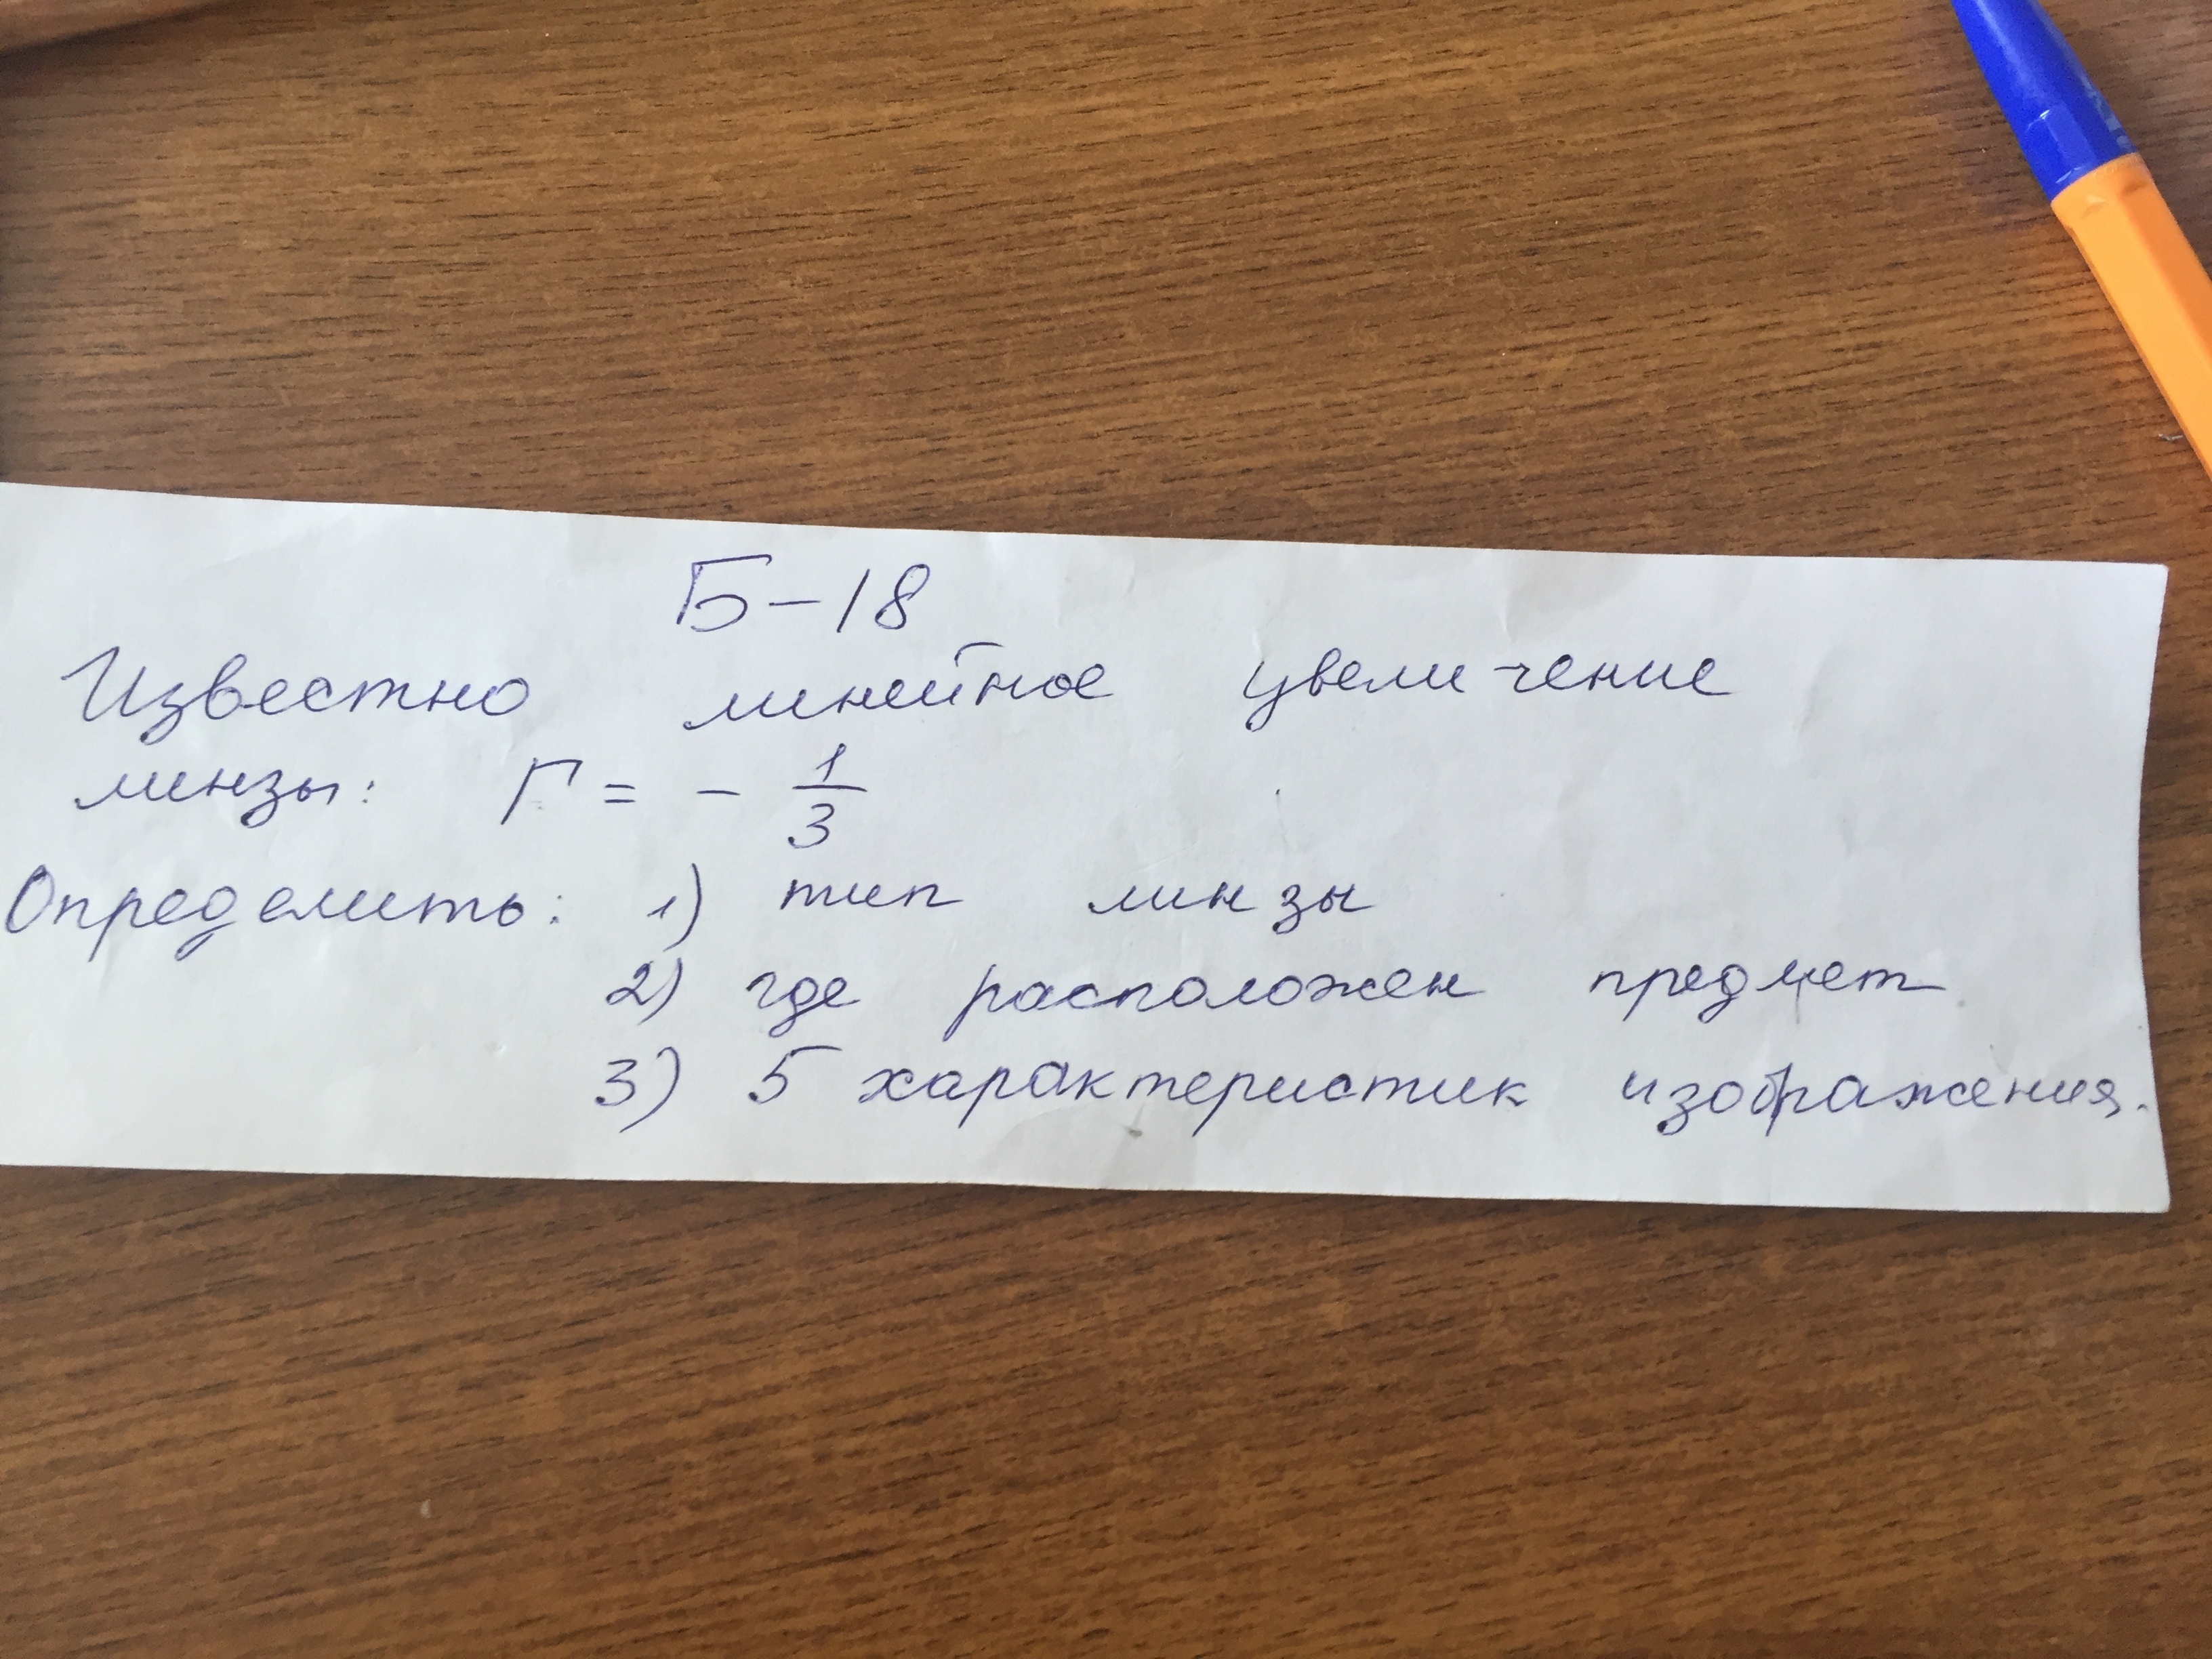 Б-18
Известно линейное увеличение
линзы: Г = - 1/3
Определить: 1) тип линзы
2) где расположен предмет
3) 5 характеристик изображения.